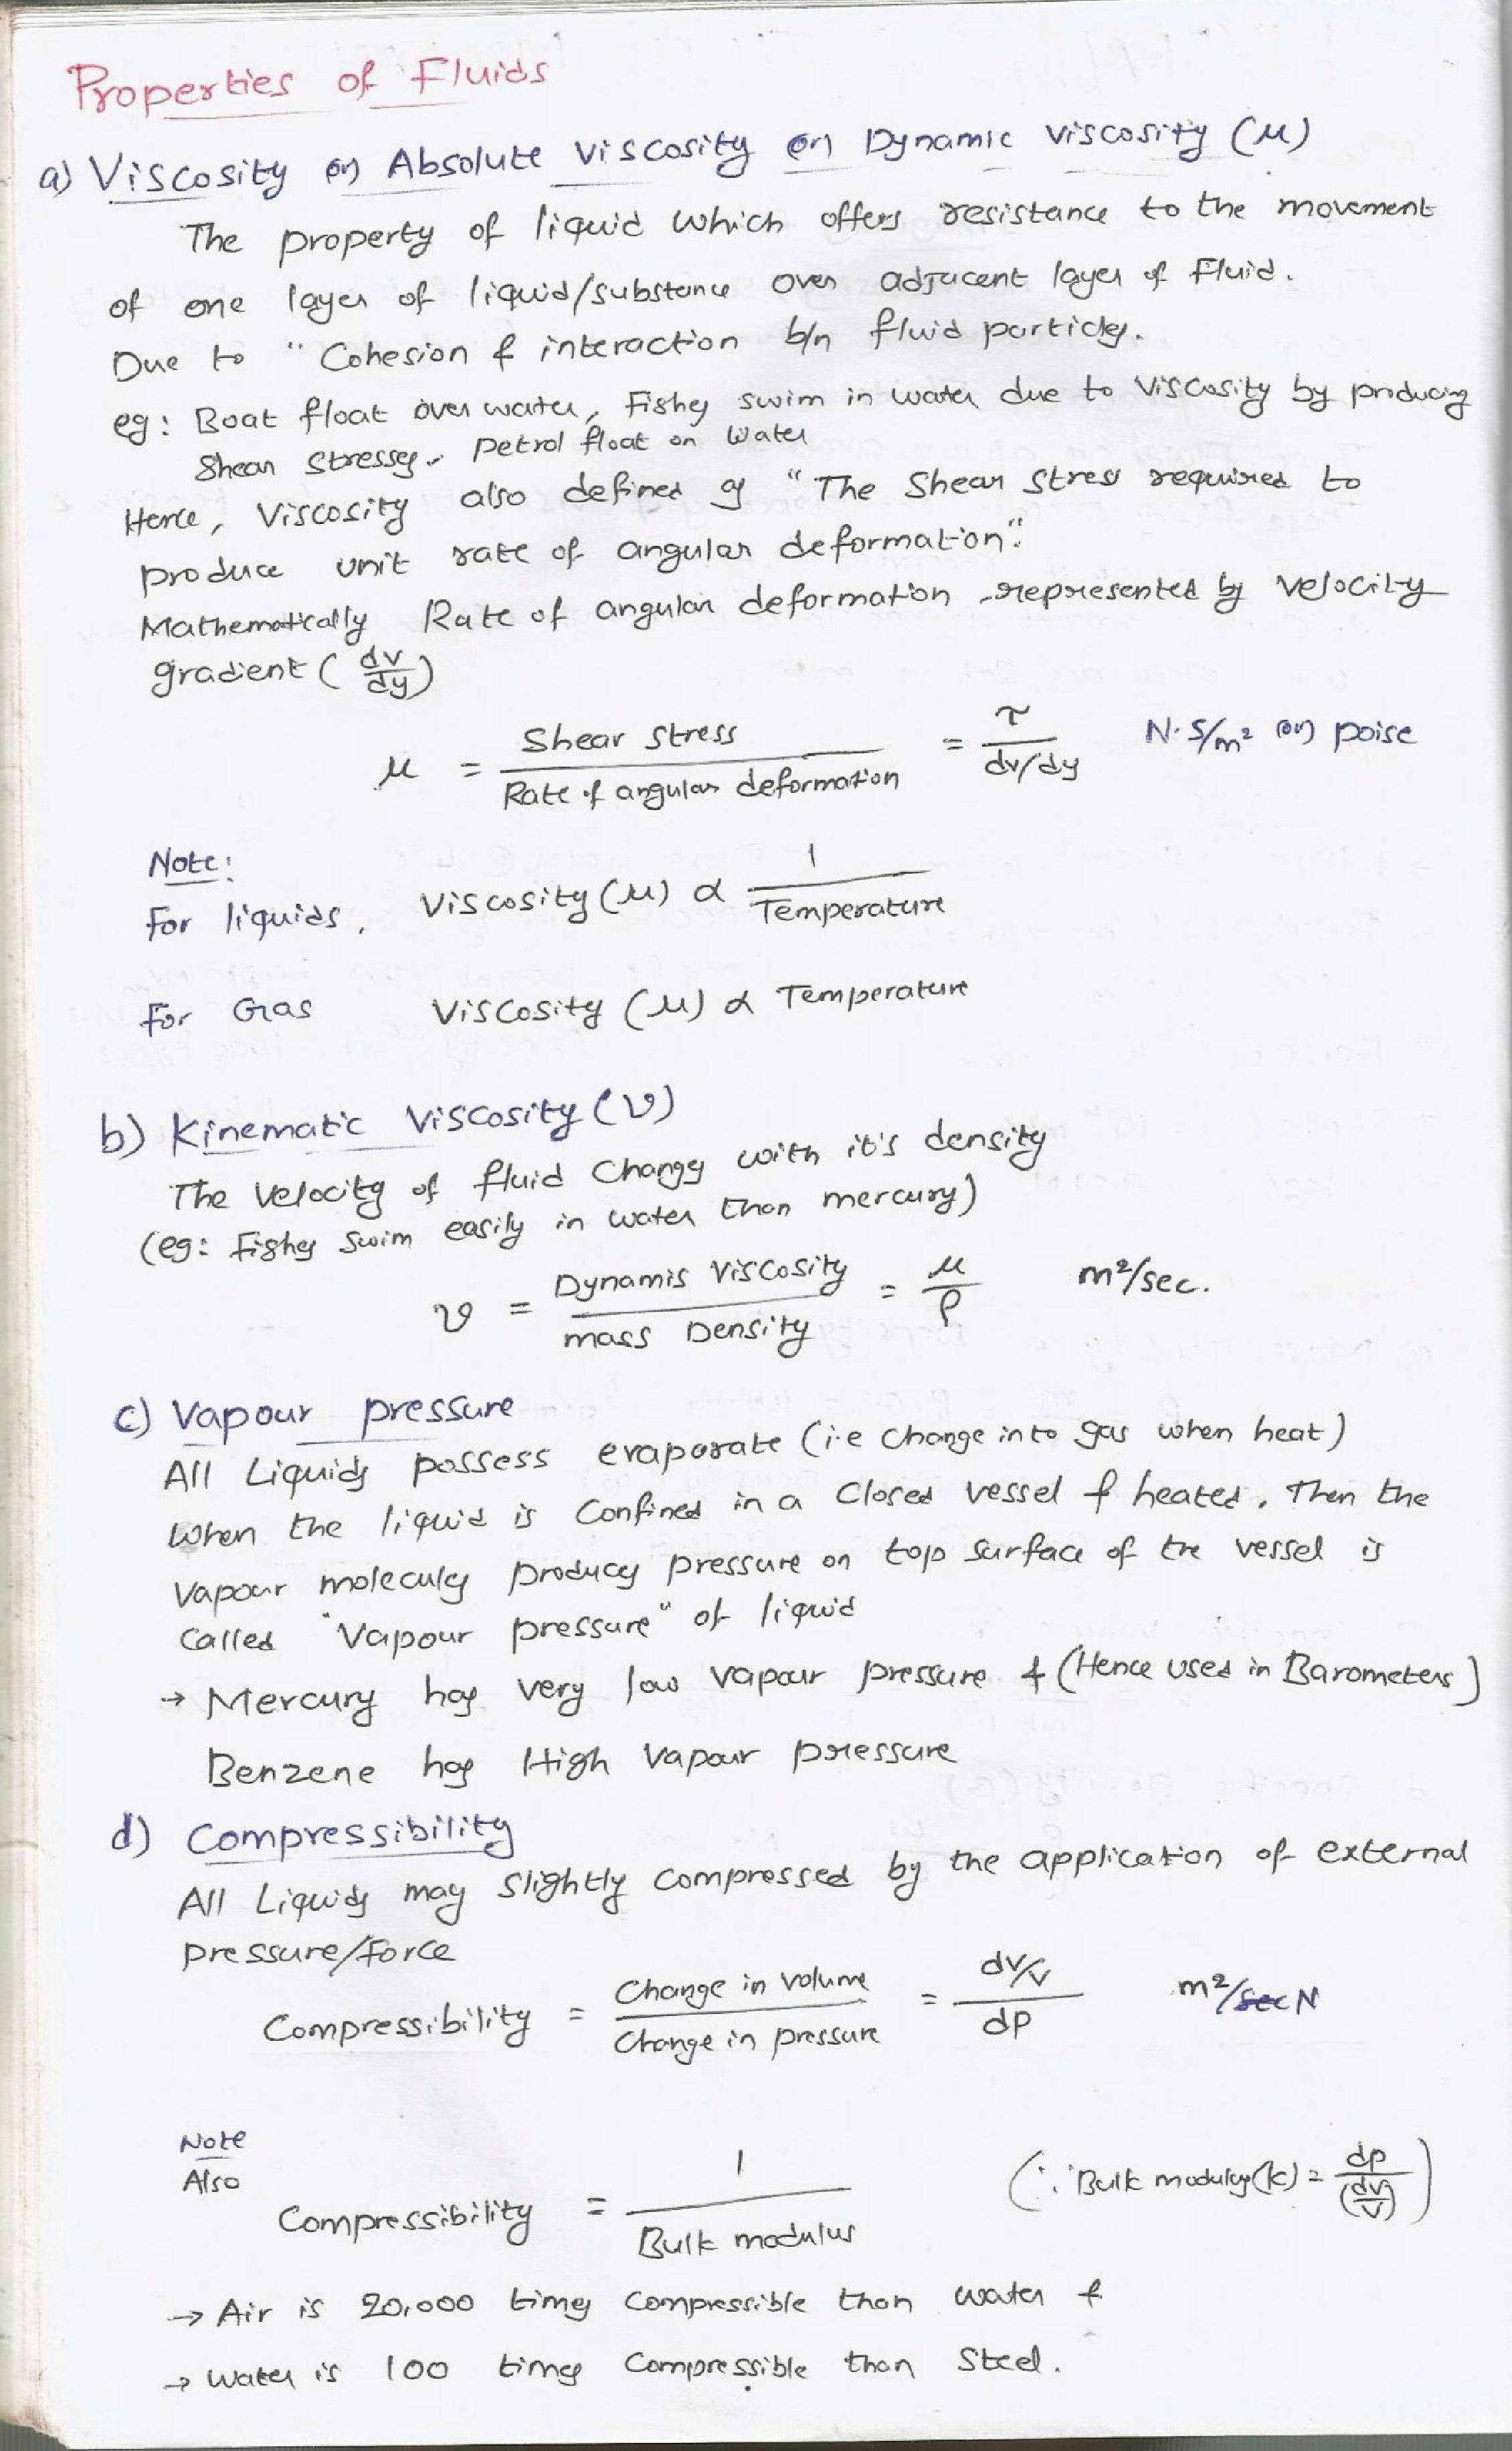 Properties of Fluids
a) Viscosity (or) Absolute Viscosity (or) Dynamic Viscosity (μ)
The property of liquid which offers resistance to the movement
of one layer of liquid/substance over adjacent layer of Fluid.
Due to " Cohesion & interaction b/n fluid particles.
eg: Boat float over water, Fishes swim in water due to Viscosity by producing
Shear Stresses. Petrol float on Water
Hence, Viscosity also defined as "The Shear Stress required to
produce unit rate of angular deformation".
Mathematically Rate of angular deformation represented by velocity
gradient (dv/dy)
μ = Shear Stress / Rate of angular deformation = τ / dv/dy N·S/m² (or) poise
Note:
For liquids, Viscosity (μ) α 1 / Temperature
For Gas Viscosity (μ) α Temperature
b) Kinematic Viscosity (ν)
The Velocity of fluid Changes with it's density
(eg: Fishes Swim easily in water than mercury)
ν = Dynamis Viscosity / mass Density = μ / ρ m²/sec.
c) Vapour pressure
All Liquids possess evaporate (i.e Change into gas when heat)
When the liquid is Confined in a Closed vessel & heated, Then the
Vapour molecules produces pressure on top surface of the vessel is
Called "Vapour pressure" of liquid
→ Mercury has very low vapour pressure & (Hence used in Barometers)
Benzene has High Vapour pressure
d) Compressibility
All Liquids may slightly compressed by the application of external
pressure/force
Compressibility = Change in volume / Change in pressure = dv/v / dp m²/sec N
Note
Also
Compressibility = 1 / Bulk modulus (∵ Bulk modulus(k) = dp / (dv/v))
→ Air is 20,000 times Compressible than water &
→ Water is 100 times Compressible than Steel.